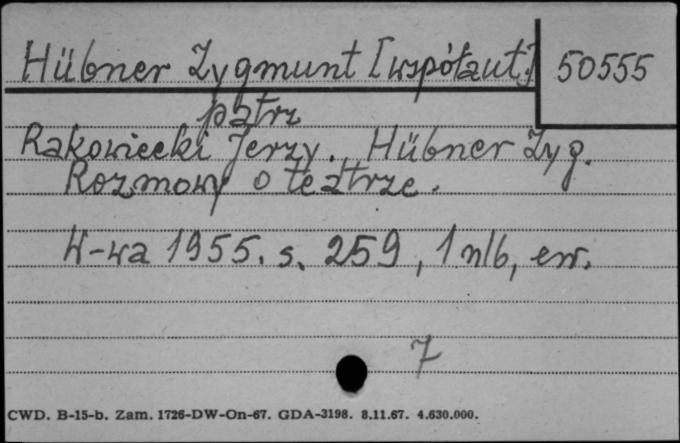 Hübner Zygmunt [współaut.] 50555
patrz
Rakowiecki Jerzy. Hübner Zyg.
Rozmowy o teatrze.
W-wa 1955. s. 259, 1 nlb, err.
7
CWD. B-15-b. Zam. 1726-DW-On-67. GDA-3198. 8.11.67. 4.630.000.